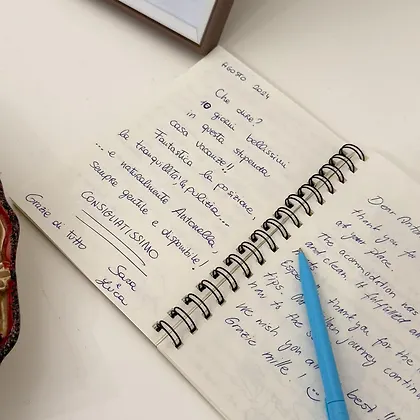 AGOSTO 2024
Che dire?
10 giorni bellissimi
in questa stupenda
casa vacanze!!
Fantastica la posizione,
la tranquillità, la pulizia...
... e naturalmente Antonella
sempre gentile e disponibile!
CONSIGLIATISSIMO
Grazie di tutto
Sara
e
Luca
Dear
thank you fo
at your place.
the accommodation was
and clean it fulfilled
Espe
tips. thank you for the
how to the journey contin
We wish you a best!!
Grazie mille!